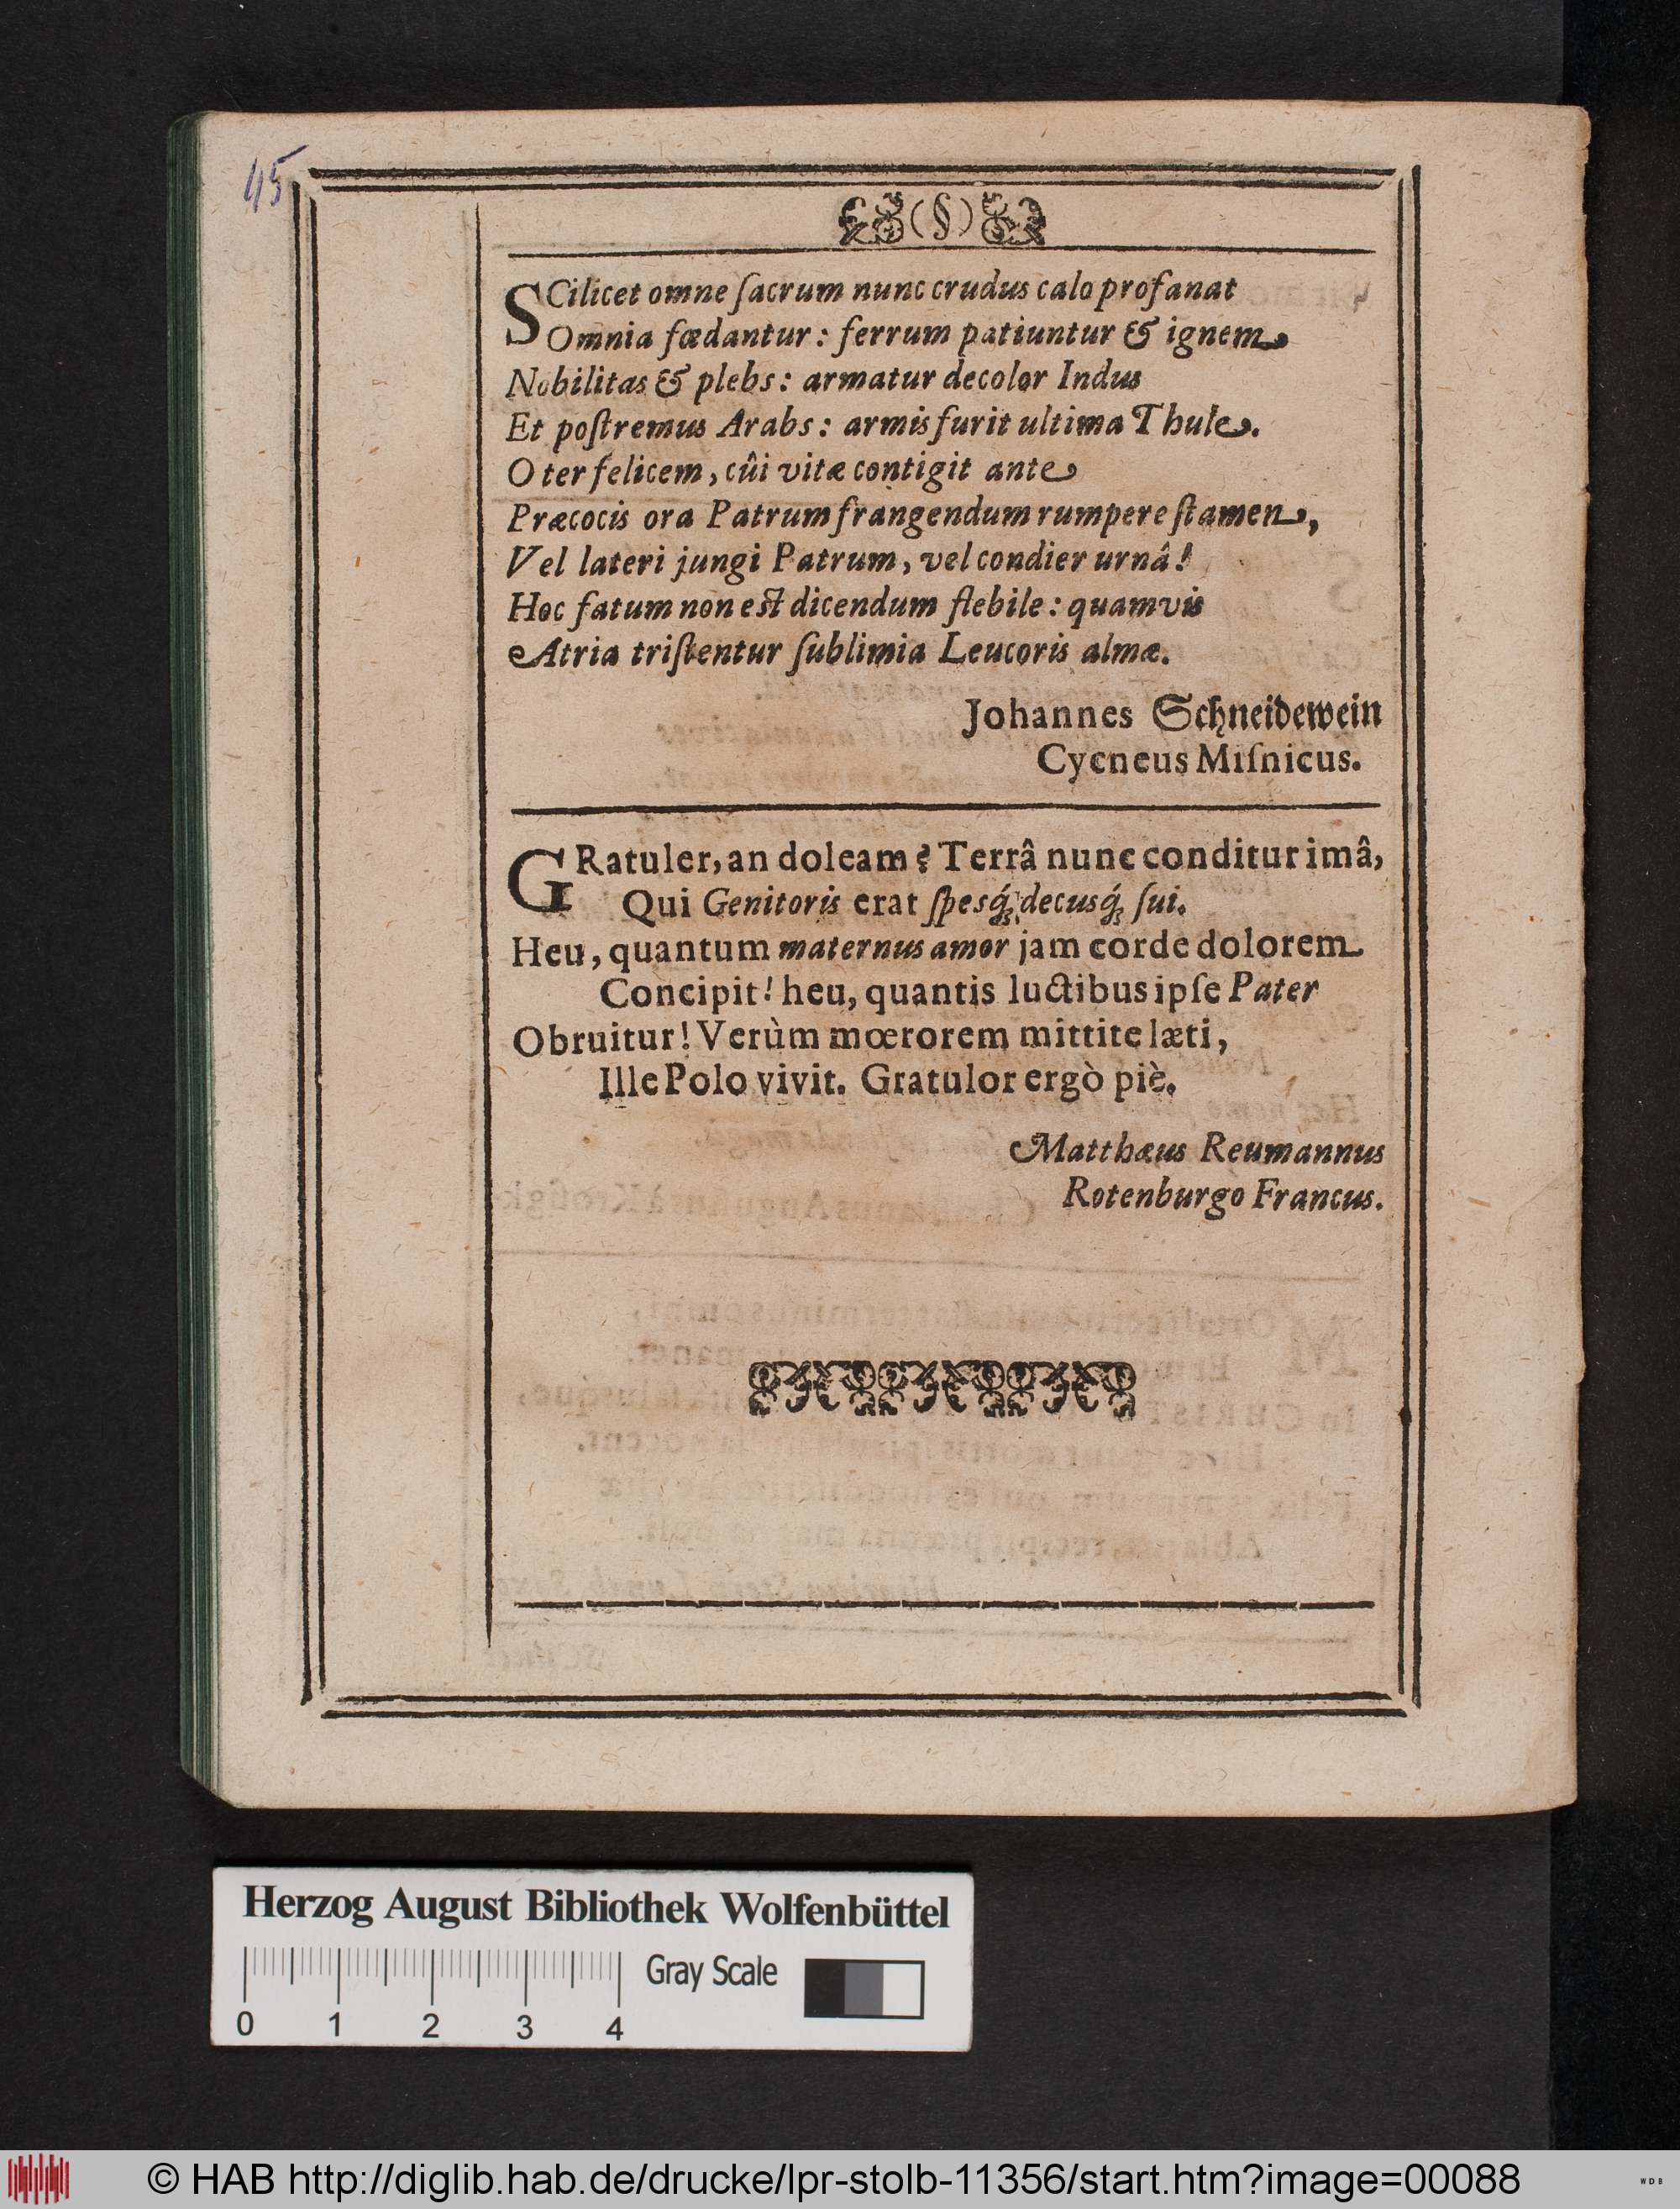 45
(§)
SCilicet omne ſacrum nunc crudus calo profanat
Omnia fœdantur: ferrum patiuntur & ignem
Nobilitas & plebs: armatur decolor Indus
Et poſtremus Arabs: armis furit ultima Thule.
O ter felicem, cûi vitæ contigit ante
Præcocis ora Patrum frangendum rumpere ſtamen,
Vel lateri jungi Patrum, vel condier urnâ!
Hoc fatum non eſt dicendum flebile: quamvis
Atria triſtentur ſublimia Leucoris almæ.
Johannes Schneidewein
Cycneus Miſnicus.
GRatuler, an doleam? Terrâ nunc conditur imâ,
Qui Genitoris erat ſpesq́; decusq́; ſui.
Heu, quantum maternus amor jam corde dolorem
Concipit! heu, quantis luctibus ipſe Pater
Obruitur! Verùm mœrorem mittite læti,
Ille Polo vivit. Gratulor ergò piè.
Matthæus Reumannus
Rotenburgo Francus.
Herzog August Bibliothek Wolfenbüttel
Gray Scale
0 1 2 3 4
© HAB http://diglib.hab.de/drucke/lpr-stolb-11356/start.htm?image=00088
WDB